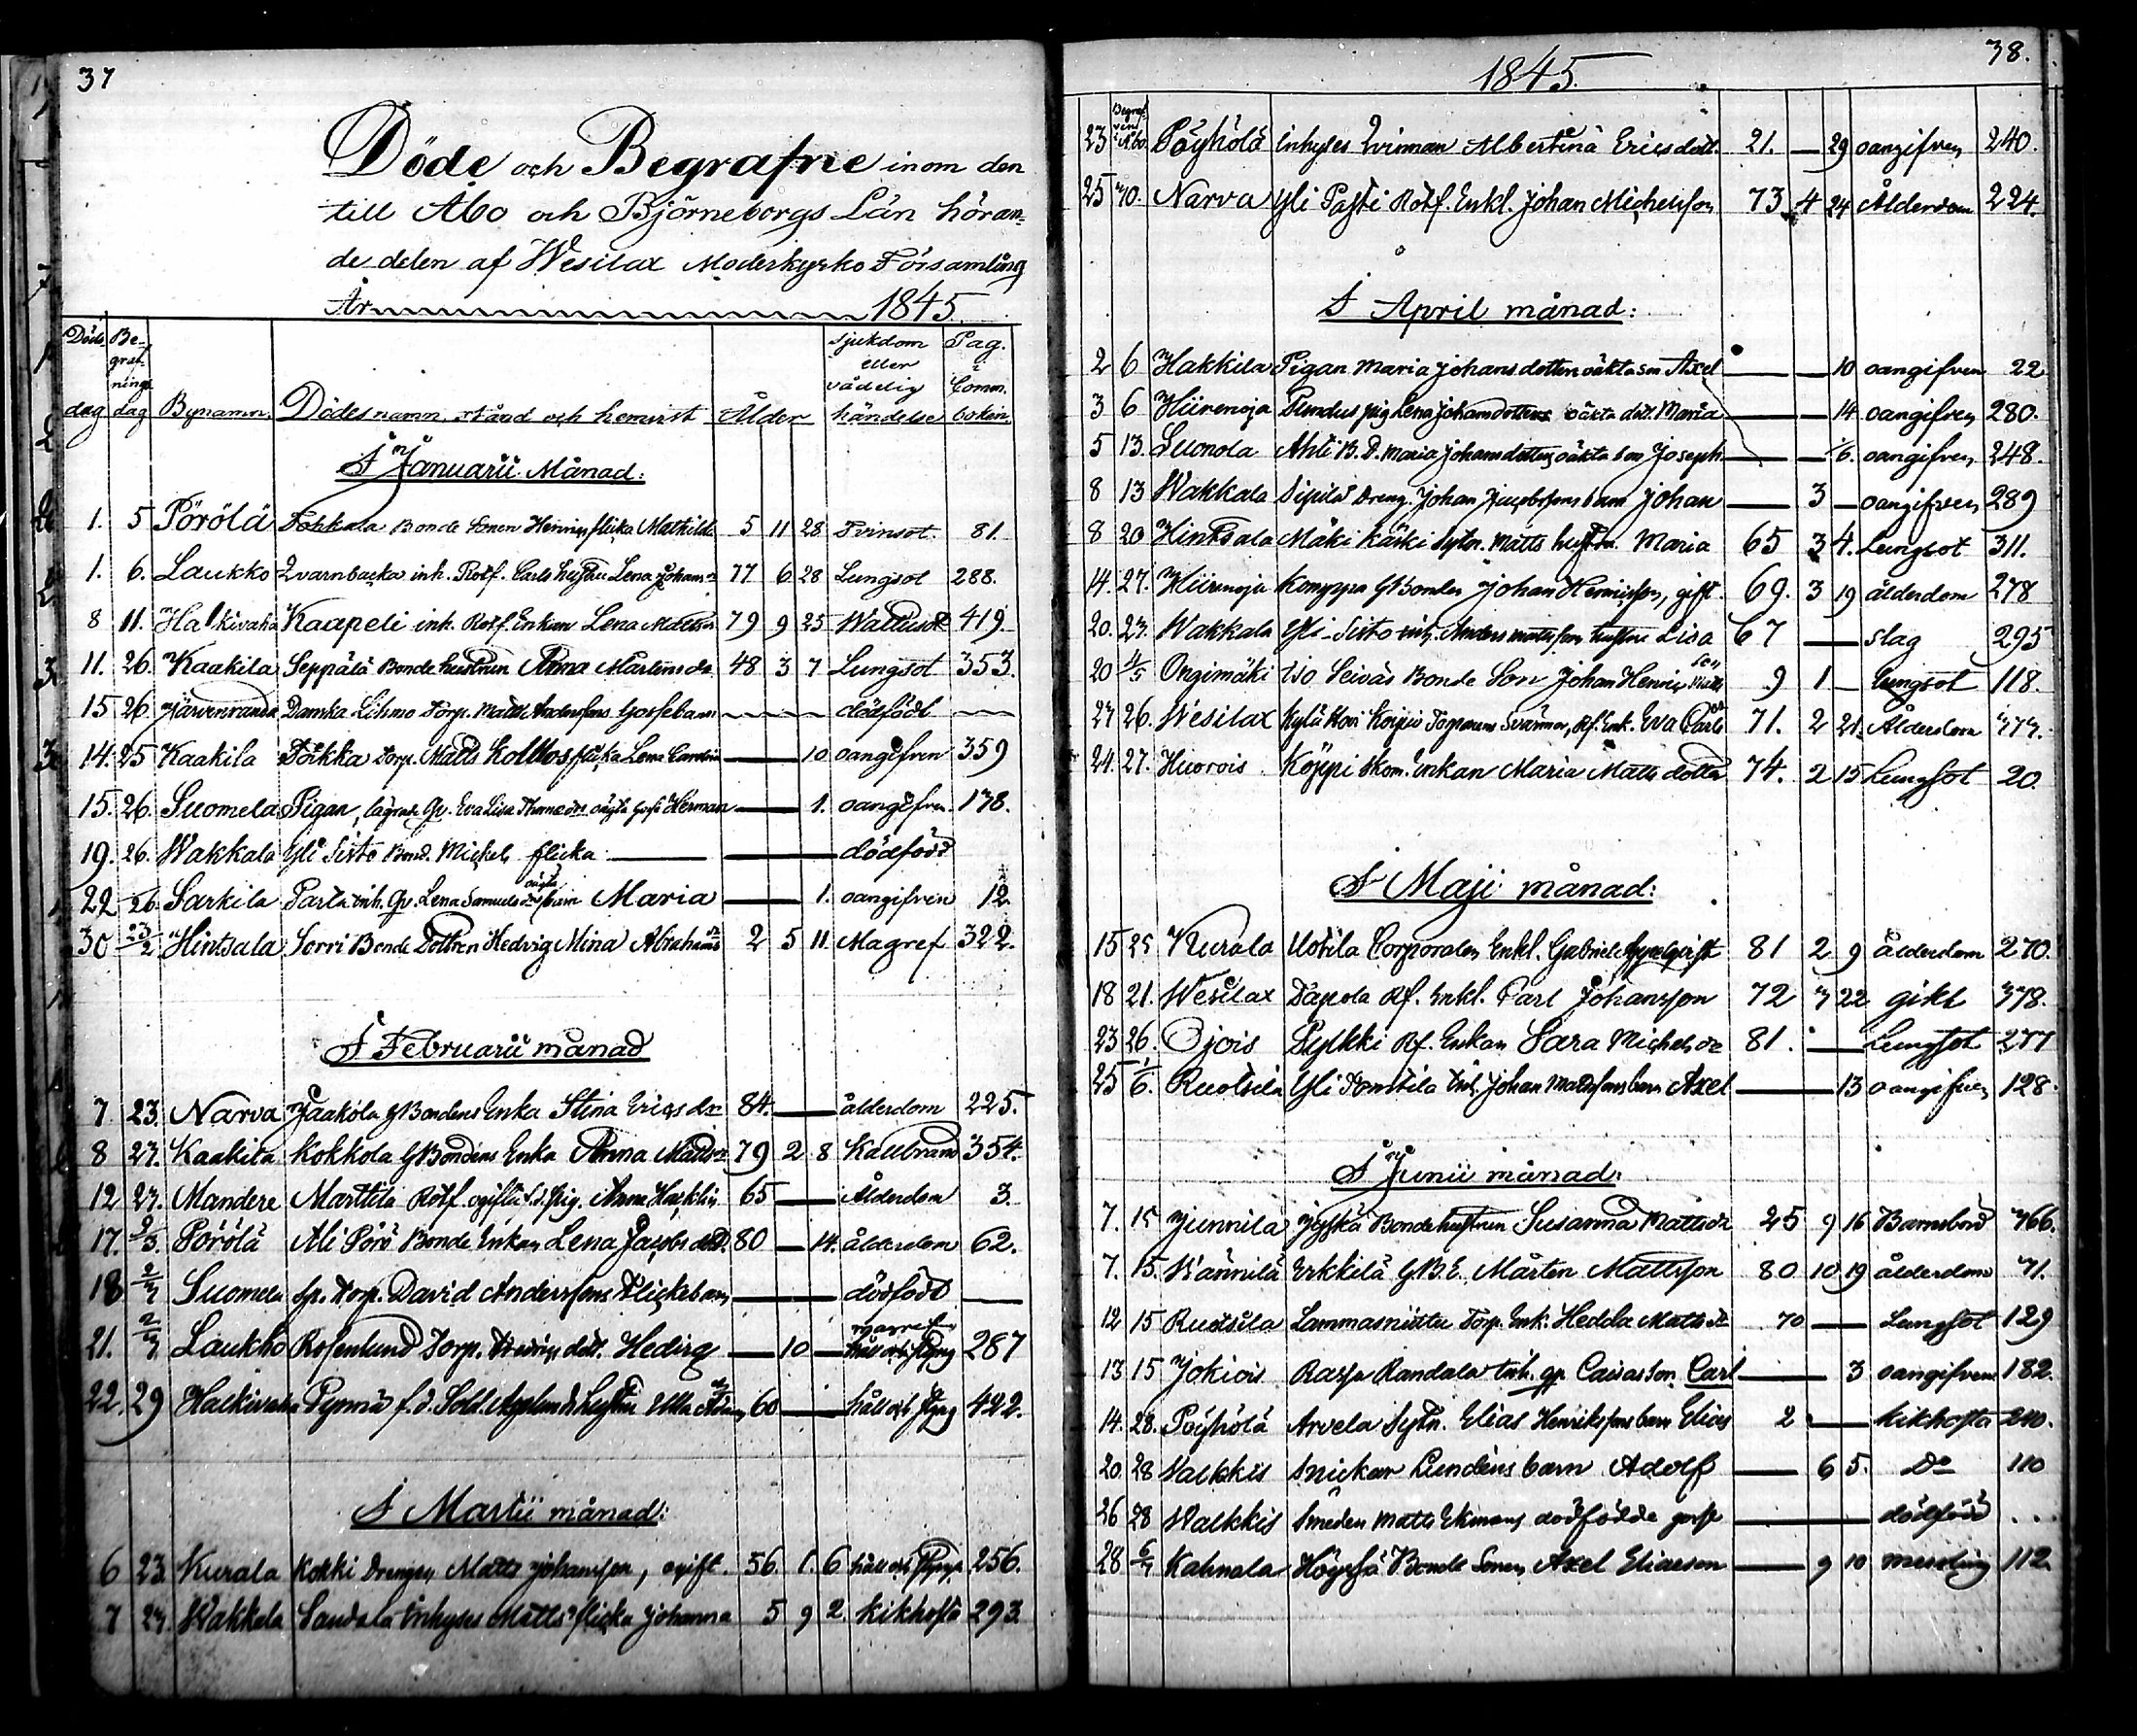 37
Döde och Begrafne inom den
till Åbo och Björneborgs Län höran-
de delen af Wesilax Moderkyrko Församling
År 1845.
Döds- dag Be- graf- nings dag Bynamn. Dödes namn, stånd och hemvist Ålder Sjukdom eller vådelig händelse Pag. i Comm. boken.
I Januarii Månad:
1. 5 Pörölä Tohkala Bonde Sonen Henrics flicka Mathilda 5 11 28 Tvinsot. 81.
1. 6. Laukko Qvarnbacka inh. Rotf. Carls hustru Lena Johans dr 77 6 28 Lungsot 288.
8 11. Halkivaha Kaapeli inh. Rotf. Enkan Lena Mattsdr 79 9 25 Wattusot 419.
11. 26. Kaakila Seppälä Bonde hustrun Anna Mårtens dr 48 3 7 Lungsot 353.
15 26 Järvenranda Damka Lihmo Torp. Matts Anderssons Gossebarn dödfödt
14. 25 Kaakila Torp. Matts flicka Lena 10 oangifven 359
15. 26. Suomela Pigan, lägrade Qv. Eva Lisa Thomædrs oägta gosse Herman 1. oangifven 178.
19. 26. Wakkala Yli Sisto Bond. Mickels flicka dödfödd
22 26. Sarkila Parta inh. Qv. Lena Samuels drs oägta barn Maria 1. oangifven 12.
30 23/2 Hintsala Sorri Bonde Dottren Hedvig Mina Abrahams dr 2 5 11. Magref 322.
I Februarii månad
7. 23. Narva Jaakola GBondens Enka Stina Erics dr 84. ålderdom 225.
8 27. Kaakila Kokkola GBondens Enka Anna Matts dr 79 2 8 Kallbrand 354.
12 27. Mandere Marttila Rotf. ogifta f.d. Pig. Anna 65 Ålderdom 3.
17. 9/3. Pörölä Ali Pörö Bonde Enkan Lena Jacobs dott. 80 14. ålderdom 62.
18 Suomela Torp. David Anderssons Flickebarn dödfödd
21. Laukko Rosenlund Torp. Fredrics dott. Hedvig 10 magref håll och styng 287
22. 29 Halkivaha Pynnä f.d. Sold. hustru Ulla 60 håll och styng 422.
I Martii månad:
6 23. Kurala Kokki Drengen Matts Johansson, ogift. 56. 1. 6 håll och styng 256.
7 27. Wakkala Sandala Inhyses Matts flicka Johanna 5 9 2. kikhosta 293.
38.
1845.
23 Begraf- ven i Åbo. Pöyhölä Inhyses Qvinnan Albertina Ericsdott. 21. 29 oangifven 240.
25 Narva Yli Pasti Rotf. Enkl. Johan Michelsson 73 4 24 Ålderdom 224.
I April månad:
2 6 Hakkila Pigan Maria Johans dotters oäkta son Axel 10 oangifven 22
3 6 Hiirenoja pig Lena Johansdotters oäkta dott. Maria 14 oangifven 280.
5 13. Luonola Ahti B. D. Maria Johansdotters oäkta son Joseph 6. oangifven 248.
8 13 Wakkala Sipilä Dreng. Johan Jacobssons barn Johan 3 oangifven 289
8 20 Hintsala Mäki Käski Sytn. Matts hustru Maria 65 3 4. Lungsot 311.
14. 27. Hiirenoja Komppa GBonden Johan Henricsson, gift. 69. 3 19 ålderdom 278
20. 27. Wakkala Yli-Sisto inh. Anders Mattssons hustru Lisa 67 slag 295
20 4/5 Ongimäki Iso Seiväs Bonde Son Johan Henric Matts son 9 1 lungsot 118.
27 26. Wesilax Rf. Enk. Eva Carls dr 71. 2 21. Ålderdom 377.
24. 27. Huorois Köppi skom. Enkan Maria Matts dotter 74. 2 15 Lungsot 20.
I Maji månad:
15 25 Kurala Uotila Corporalen Enkl. Gabriel 81 2 9 ålderdom 270.
18 21. Wesilax Tapola Rf. Enkl. Carl Johansson 72 7 22 gikt 378.
23 26. Ojois Pylkki Rf. Enkan Sara Michels dr 81. Lungsot 277
25 1/6. Ruotsila Yli Tomtila Inh. Johan Mattssons barn Axel 13 oangifven 128.
I Junii månad:
7. 15 Junnila Jyskä Bonde hustrun Susanna Matts dr 25 9 16 Barnsbörd 366.
7. 15. Kännilä Erkkilä G.B.E. Mårten Mattsson 80 10 19 ålderdom 71.
12 15 Ruotsila Lammasniittu Torp. Enk. Hedda Matts dr 70 Lungsot 129
13 15 Jokiois Rasja Randala Inh. qv. Caisas son Carl 3 oangifven 182.
14. 28. Pöyhölä Arvela Sytn. Elias Henrikssons barn Elias 2 kikhosta 240.
20. 28 Walkkis Snickar Lundéns barn Adolf 6 5. Do 110
26 28 Walkkis Smeden Matts Ekmans dödfödde gosse dödfödd ...
28 6/7 Kahnala Höyssä Bonde Sonen Axel Eliaeson 9 10 messling 112